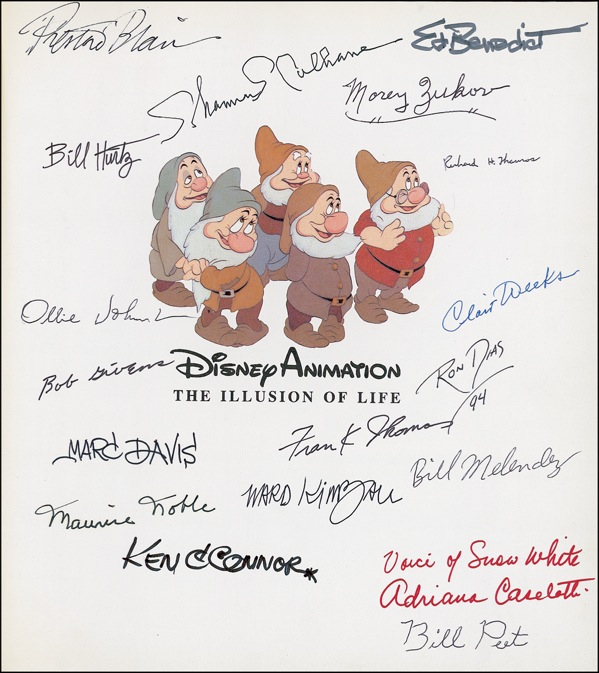 Preston Blair
Ed Benedict
Shamus Culhane
Morey Zukor
Bill Hurtz
Richard H. Thomas
Ollie Johnston
Clair Weeks
Bob Givens
DISNEY ANIMATION
THE ILLUSION OF LIFE
RON DIAS
/94
MARC DAVIS
Frank Thomas
Bill Melendez
Maurice Noble
WARD KIMBALL
KEN O'CONNOR
Voice of Snow White
Adriana Caselotti
Bill Peet